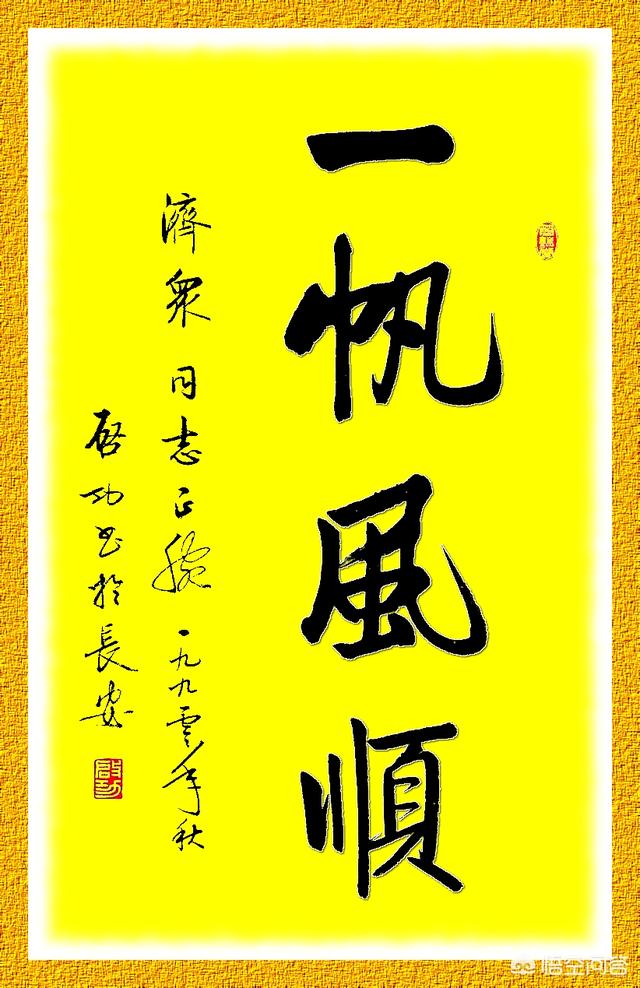 一帆風順
濟眾同志正腕 一九九零年秋
啓功书於長安
啟功
悟空问答